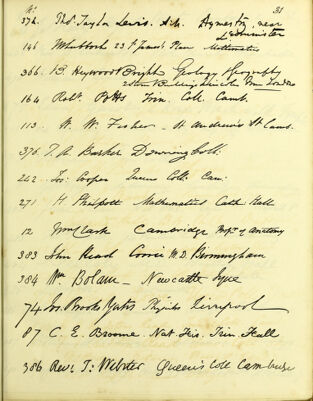 No. 31
374. Thos. Taylor Lewis. A.M. Aymestry, near
Leominster
146 Whittock 23 St James's Place Mathematics
366. B. Heywood Bright Geology & Geography
164 Robt. Potts Trin. Coll. Camb.
113. W. W. Fisher - St Andrew's St Camb.
376. T. A. Barker Downing Coll:
262 Jos: Cooper Queens Coll: Cam:
271 H Philpott Mathematics Cath: Hall
12 Wm Clark Cambridge Prof. of Anatomy
383 John Corrie M.D. Birmingham
384 Wm. Bolam - Newcastle Tyne
74 Jos. Brooks Yates Physics Liverpool
87 C. E. Broome. Nat. His. Trin. Hall
386 Revd. T: Webster Queen's Coll Cambridge